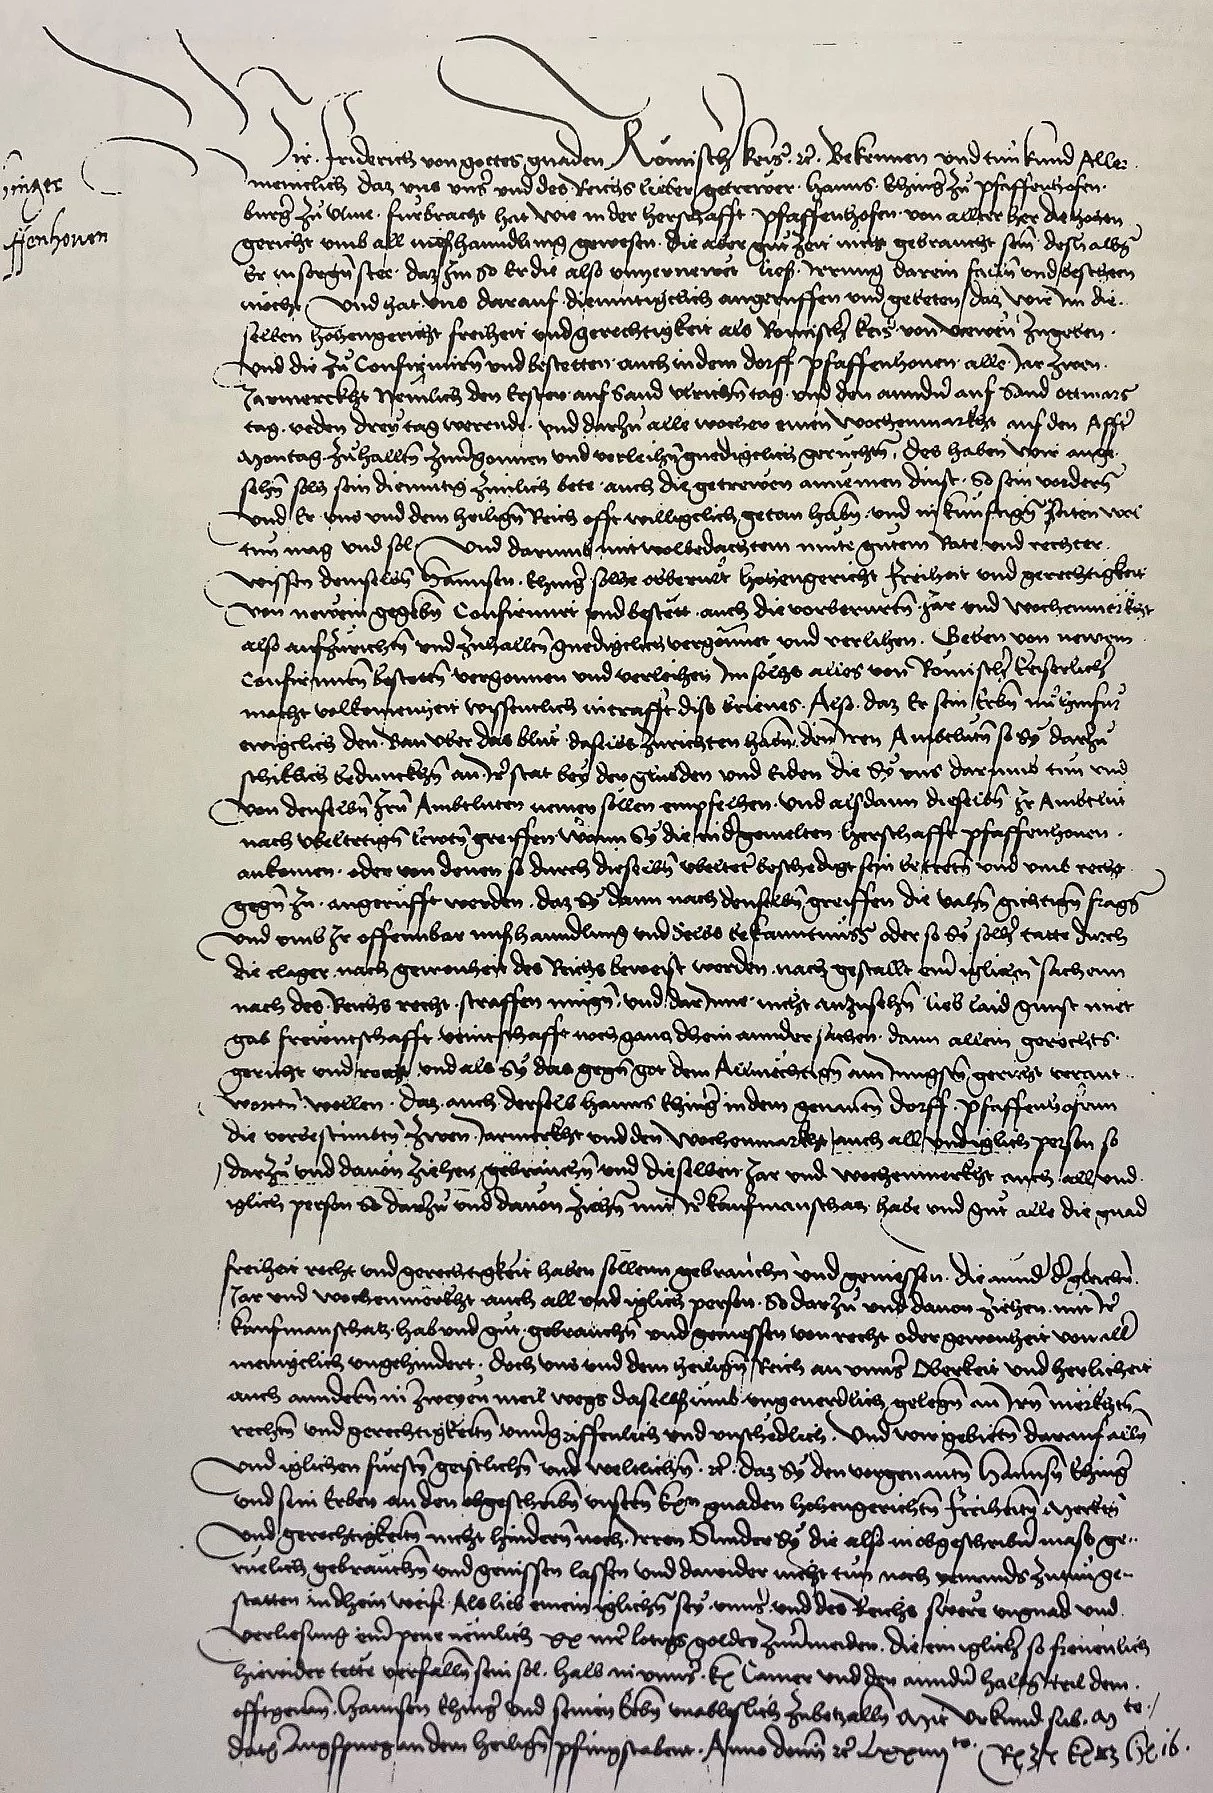 Wir Friderich von gottes gnaden Römisch keis. etc. Bekennen und tun kund Aller
meinclich daz vns vnser und des Reichs lieber getrewer Hanns Ehing zu Pfaffenhofen
burg zu Ulme furbracht hat wie in der herschafft Pfaffenhofen von allter her die hohen
gericht umb all misshanndlung gewesen die aber gut zeit nicht gebraucht sein deshalbn
Er in sorgn stee daz Im so Er die also unvernewet ließ Irrung darein falln und bescheen
möcht Und hat vns darauf diemutigclich angeruffen und gebeten daz wir Im die
selben hohengericht freiheit und gerechtigkeit als Römischer keis von newem zugeben
und die zu Confirmirn und bestetten auch in dem dorff Pfaffenhouen alle Jar zwen
Jarmerckht Nemlich den Ersten auf Sand Ulrichs tag und den anndern auf Sand Ottmars
tag yeden drey tag werende und darzu alle wochen einen Wochenmarkht auf den Affter
Montag zuhalltn zuuergonnen und verleihn gnedigclich geruchten Des haben wir ange
sehn solh sein diemutig zimlich bete auch die getrewen annemen dinst So sein vordern
und Er vns und dem heiligen Reich offt willigclich getan habn und in kunfftign Zeiten wol
tun mag und sol Und darumb mit wolbedachtem mute gutem Rate und rechter
wissen demselbn Hannsen Ehing solhe obberurt hohengericht freiheit und gerechtigkeit
von newem gegebn Confirmirt und bestett auch die vorberurtn Jar und wochenmerkht
also aufzurichtn und zuhalltn gnedigclich vergönnet und verlihen Geben von newem
Confirmirn bestetten vergonnen und verleihen Im solhs alles von Römischer keiserlicher
macht volkomenheit wissentlich in crafft diss brieues Also daz Er sein Erbn nu hinfur
ewigclich den Ban uber das blut daselbs zurichten habn den Iren Ambtlutn so Sy darzu
schicklich bedunckhn an Ir stat bey den glubden und Eiden die Sy vns darumb tun und
von denselbn Irn Ambtluten nemen söllen empfelhen und alsdann dieselbn Ir Ambtlut
nach ubeltetign lewtn greiffen wann Sy die in der gemelten herschafft Pfaffenhouen
ankomen oder von denen so durch dieselbn ubelteter beschedigt sein betretn und umb recht
gegn In angerufft werden daz Sy dann nach denselbn greiffen die vahn gichtign fragn
und umb Ir offennbar misshanndlung und selbs bekanntnuss oder so Sy solher tatte durch
die clager nach gewonheit des Reichs beweist werden nach gestallt einer iglichn sachenn
nach des Reichs recht straffen mügn und darInne nicht anzusehn lieb laid gunst miet
gab frewntschafft veintschafft noch ganz dhein annder sachen dann allein gerechts
gericht und recht und als Sy das gegn got dem Allmechtign am Jungstn gericht verant
wortn wollen Daz auch derselb Hanns Ehing in dem genantn dorff Pfaffenhofenn
die vorbestimbtn zwen Jarmerkht und den Wochenmarkht auch all und iglich person so
darzu und dauon ziehen gebrauchn und dieselben Jar und wochenmerkht auch all und
iglich person So darzu und dauon ziehn mit Ir kaufmanschatz habe und gut alle die gnad
freiheit recht und gerechtigkeit haben söllenn gebrauchn und geniessen die annder dergleichn
Jar und wochenmerkht auch all und iglich person So darzu und dauon ziehen mit Ir
kaufmanschatz hab und gut gebrauchn und geniessen von recht oder gewonheit von aller
menigclich ungehindert doch vns und dem heiligen Reich an vnnser Oberkeit und herlicheit
auch anndern in zweyen meil wegs daselbs umb ungeuerdlich gelegn an Irn merkhtn
rechtn und gerechtigkeitn unuergriffenlich und unschedlich Und wir gebietn darauf alln
und iglichen fursten geistlichn und weltlichn etc. daz Sy den vorgenanten Hannsn Ehing
und sein Erben an den obgeschribn unsern kn gnaden hohengerichtn freiheitn Merktn
und gerechtigkeitn nicht hindern noch Irren Sunder Sy die also in obgeschribner mass ge
ruelich gebrauchn und geniessen lassen und dawider nicht tun noch yemands zutun ge
statten in dhein weise Als lieb einem iglichn sey vnnser und des Reichs swere ungnad und
verliesung einer pene nemlich XX mr lotigs goldes zuuermeiden die ein iglicher so freuenlich
hiewider tette verfalln sein sol halb in vnnser kn Camer und den anndern halbteil dem
offtgenan Hannsen Ehing und seinen Erbn unableslich zubetzalln Mit Urkund sub M to
dat Augspurg an dem heiligen pfingstabent Anno domini etc. LXXIIII to